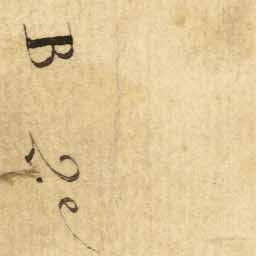 B 2e